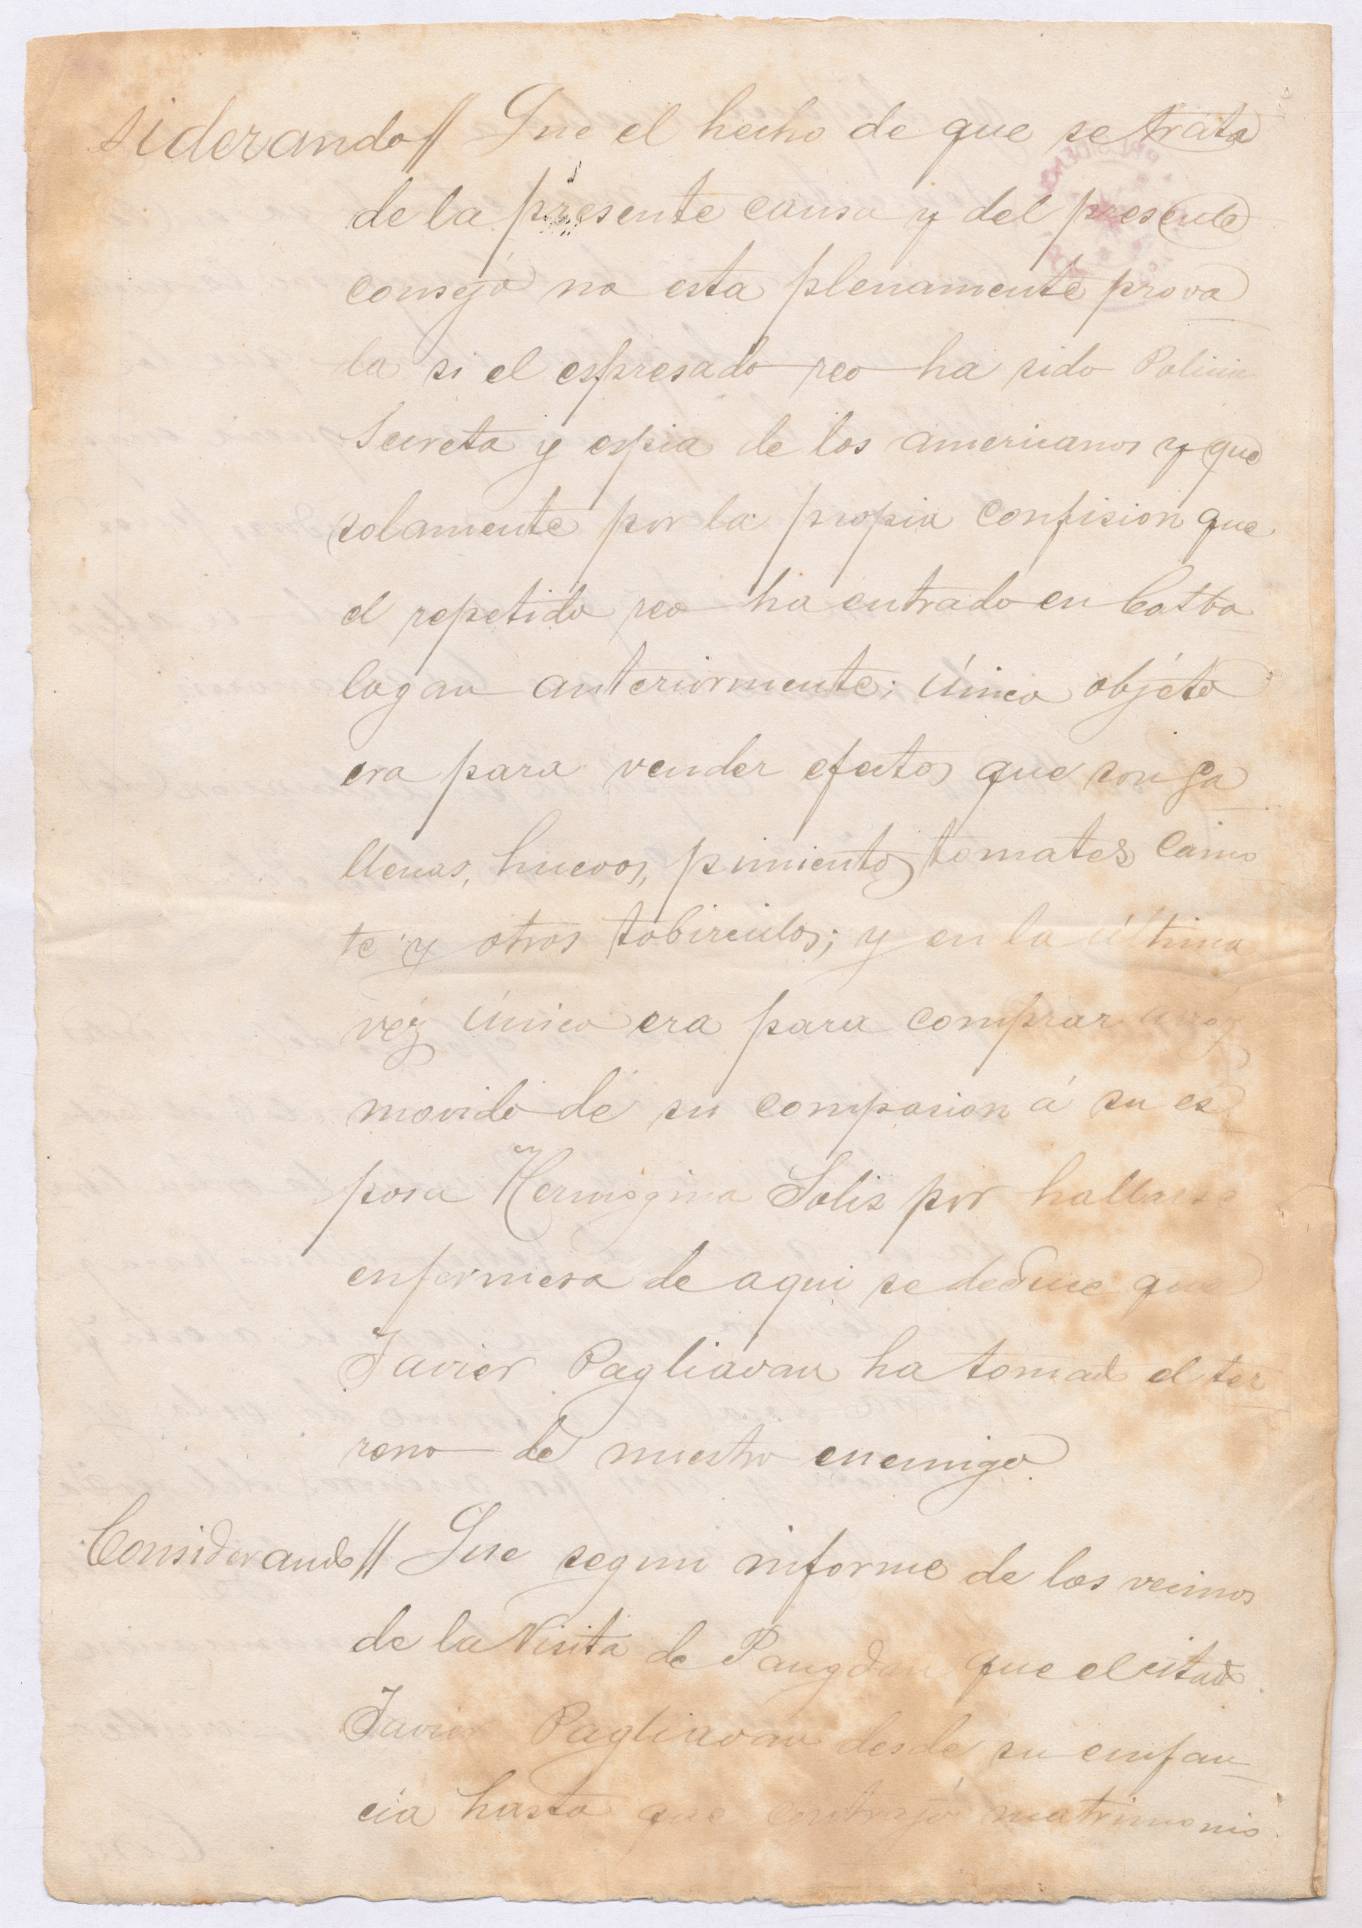 siderando // Que el hecho de que se trata
de la presente causa y del presente
consejo no esta plenamente prova
la si el espresado reo ha sido Policia
Secreta y espia de los americanos y que
solamente por la propia confision que
el repetido reo ha entrado en Catba
logan anteriormente; único objéto
era para vender efectos que son ga
llenas, huevos, pimientos tomates camo
te y otros tobirculos; y en la última
véz único era para comprar arroz
movido de su compasion á su es
posa Hermogina Solis por hallarse
enfermesa de aqui se deduce que
Javier Pagliawan ha tomado el ter
reno de nuestro enemigo.
Considerando // Que segun informe de los vecinos
de la Visita de Pangdan que el citado
Javier Pagliawan desde su enfan
cia hasta que contrajó matrimonio